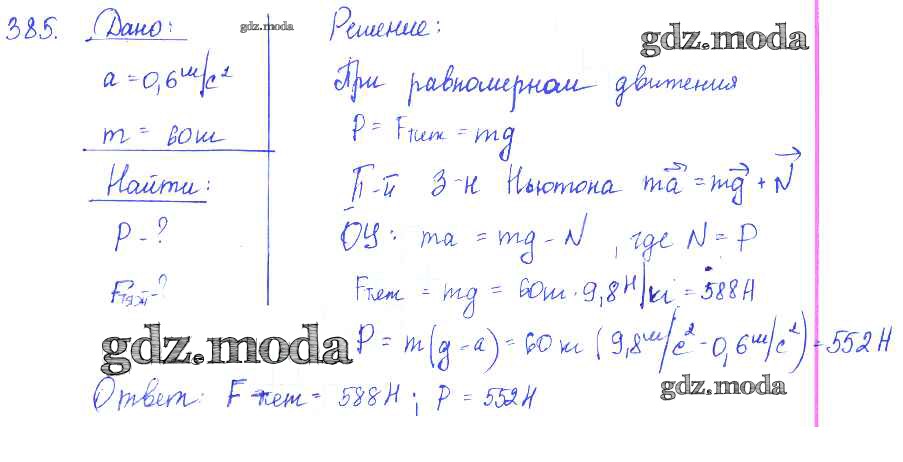 385. Дано:
gdz.moda
a = 0,6 м/с²
m = 60 кг
Найти:
P - ?
Fтяж - ?
Решение:
gdz.moda
При равномерном движения
P = Fтяж = mg
II-й З-н Ньютона ma⃗ = mg⃗ + N⃗
ОУ: ma = mg - N, где N = P
Fтяж = mg = 60кг · 9,8 Н/кг = 588 Н
gdz.moda
P = m(g - a) = 60 кг (9,8 м/с² - 0,6 м/с²) = 552 Н
gdz.moda
Ответ: Fтяж = 588 Н; P = 552 Н